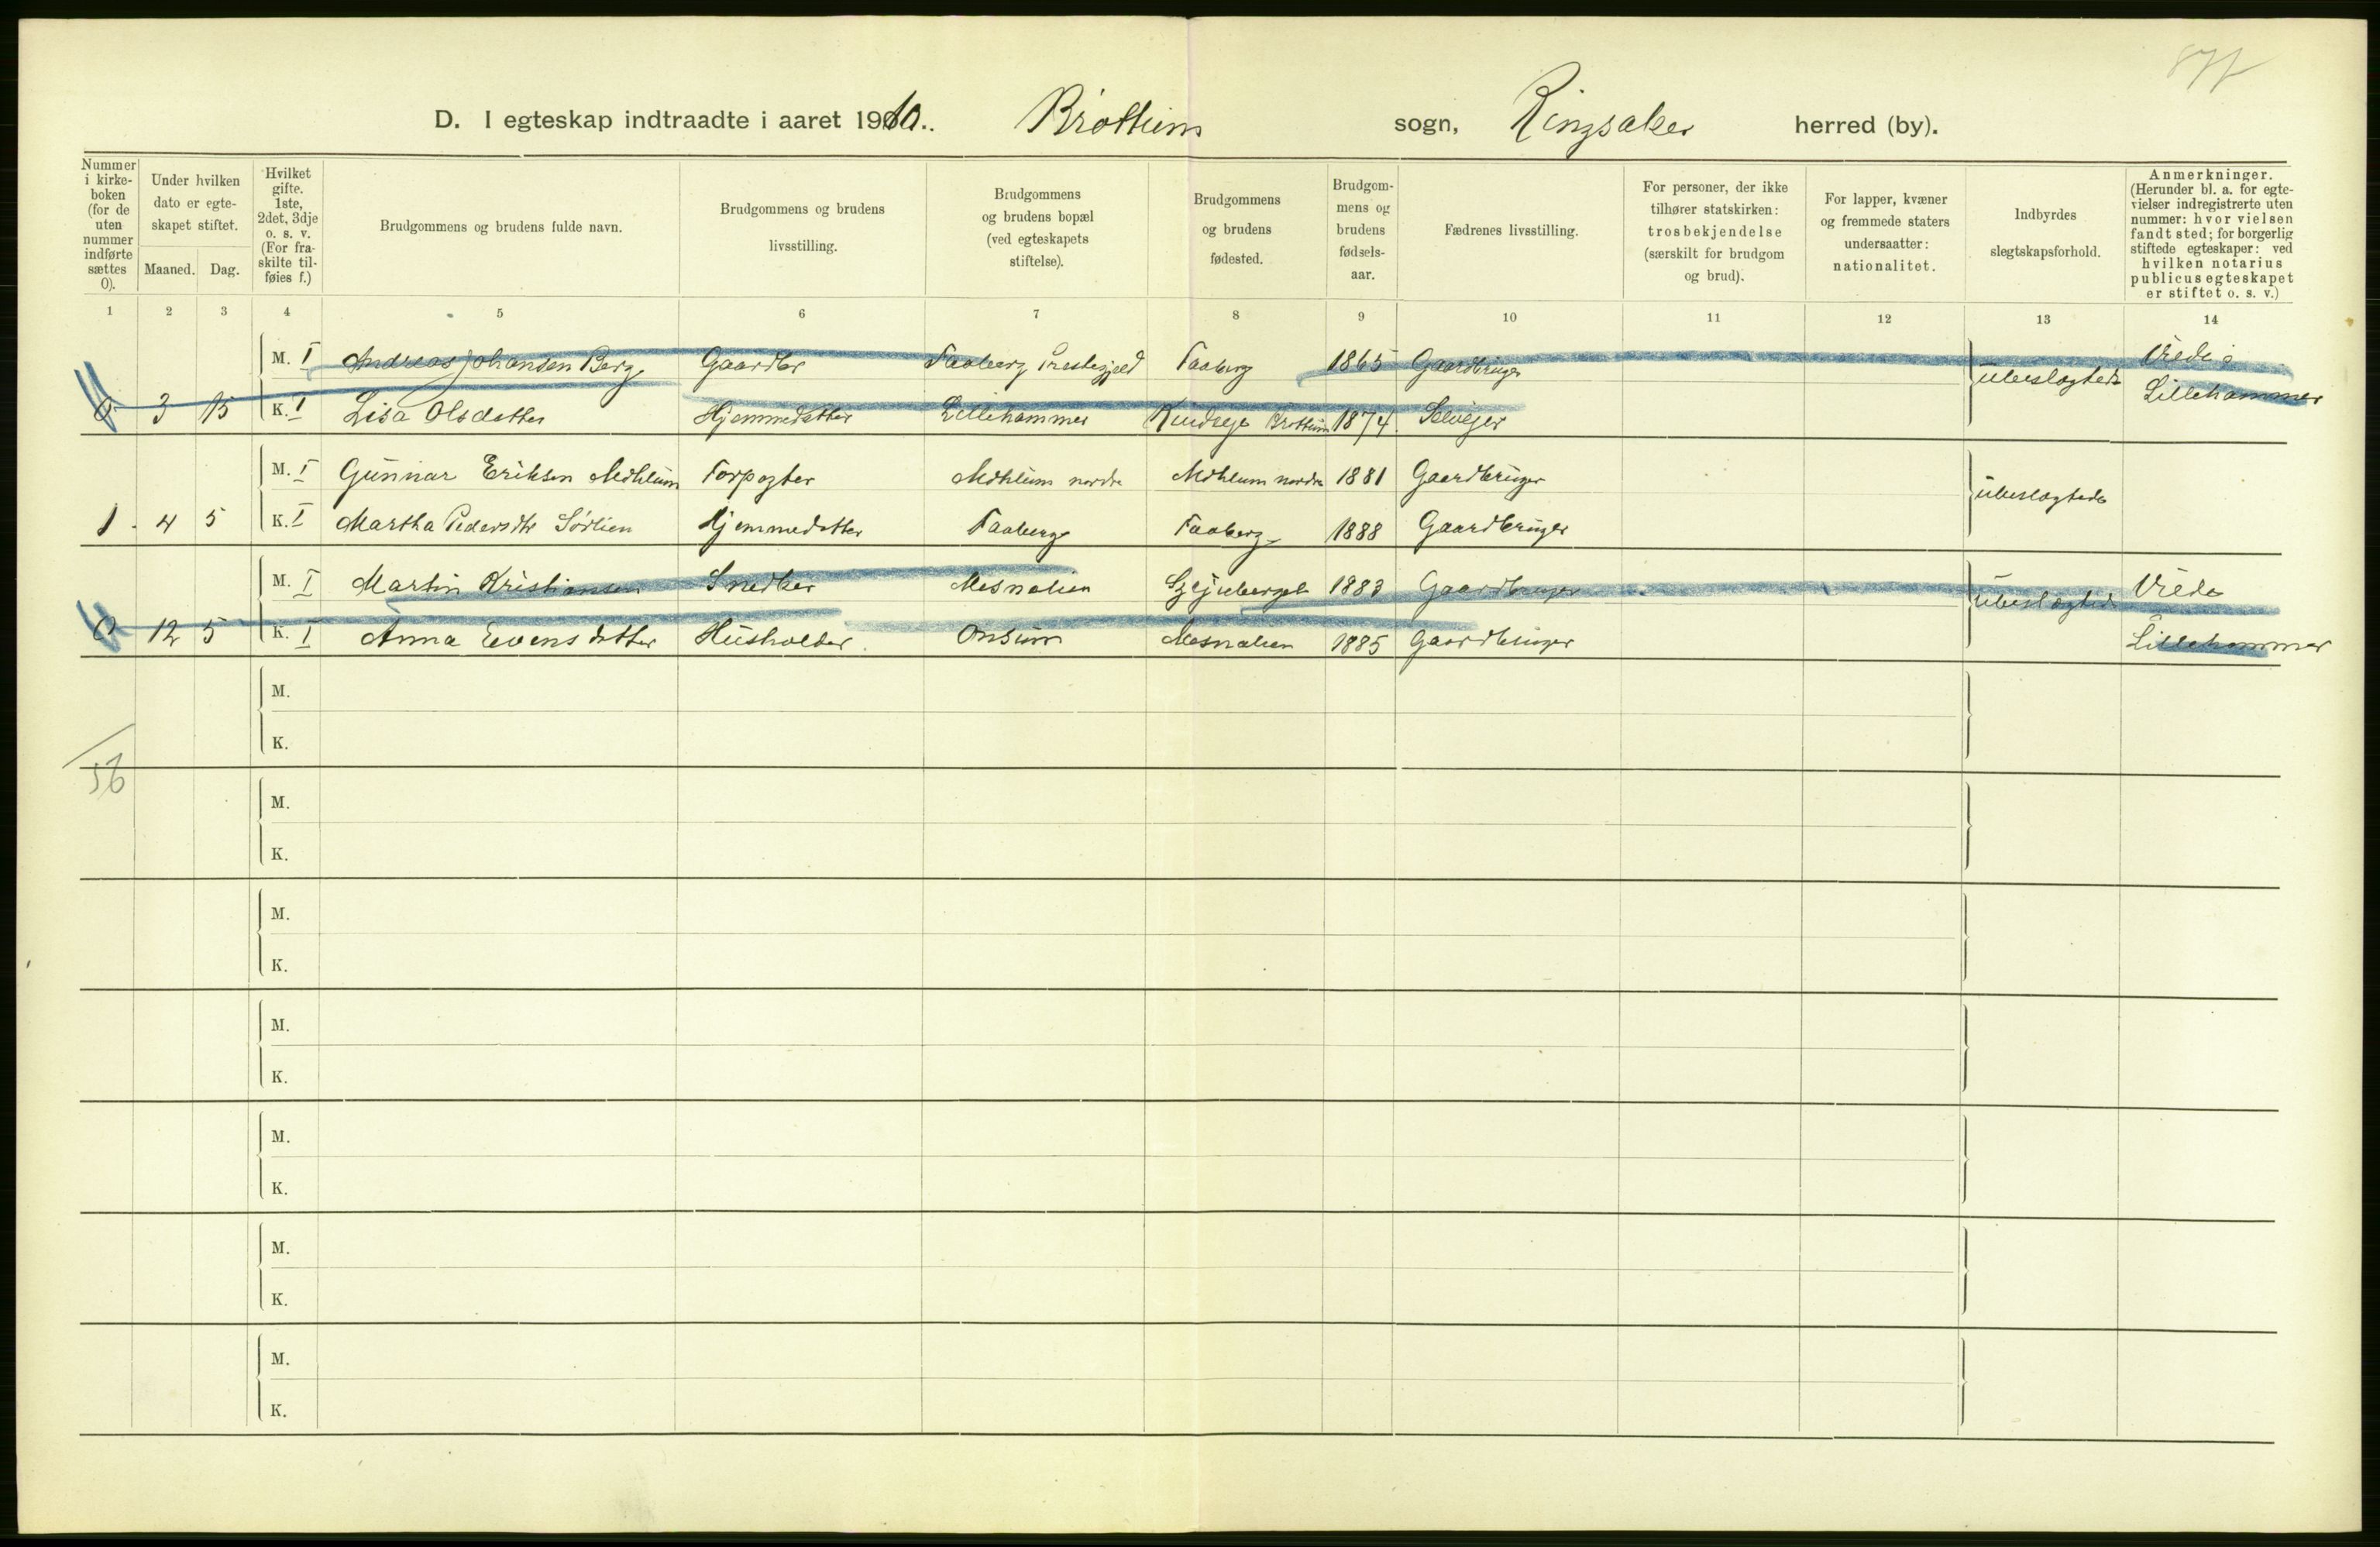 D. I egteskap indtraadte i aaret 1910. Brøttum sogn, Ringsaker herred (by).
Nummer i kirke-boken (for de uten nummer indførte sættes 0).
Under hvilken dato er egte-skapet stiftet.
Maaned. Dag.
Hvilket gifte. 1ste, 2det, 3dje o. s. v. (For fra-skilte til-føies f.)
Brudgommens og brudens fulde navn.
Brudgommens og brudens livsstilling.
Brudgommens og brudens bopæl (ved egteskapets stiftelse).
Brudgommens og brudens fødested.
Brudgom-mens og brudens fødsels-aar.
Fædrenes livsstilling.
For personer, der ikke tilhører statskirken: trosbekjendelse (særskilt for brudgom og brud).
For lapper, kvæner og fremmede staters undersaatter: nationalitet.
Indbyrdes slegtskapsforhold.
Anmerkninger. (Herunder bl. a. for egte-vielser indregistrerte uten nummer: hvor vielsen fandt sted; for borgerlig stiftede egteskaper: ved hvilken notarius publicus egteskapet er stiftet o. s. v.)
1 2 3 4 5 6 7 8 9 10 11 12 13 14
M. I Andreas Johansen Berg Gaardbr Faaberg Prestegjeld Faaberg 1865 Gaardbruger ubeslægtede Viede i
0 3 15 K. I Lisa Olsdatter Hjemmedatter Lillehammer Brøttum 1874 Selveier Lillehammer
M. I Gunnar Eriksen Mæhlum Forpagter Mæhlum nordre Mæhlum nordre 1881 Gaardbruger ubeslægtede
1 4 5 K. I Martha Pedersdtr Sørlien Hjemmedatter Faaberg Faaberg 1888 Gaardbruger
M. I Martin Kristiansen Snedker Mesnalien 1883 Gaardbruger ubeslægtede Viede
0 12 5 K. I Anna Evensdatter Husholder Onsum Mesnalien 1885 Gaardbruger Lillehammer
M.
K.
56
M.
K.
M.
K.
M.
K.
M.
K.
M.
K.
M.
K.